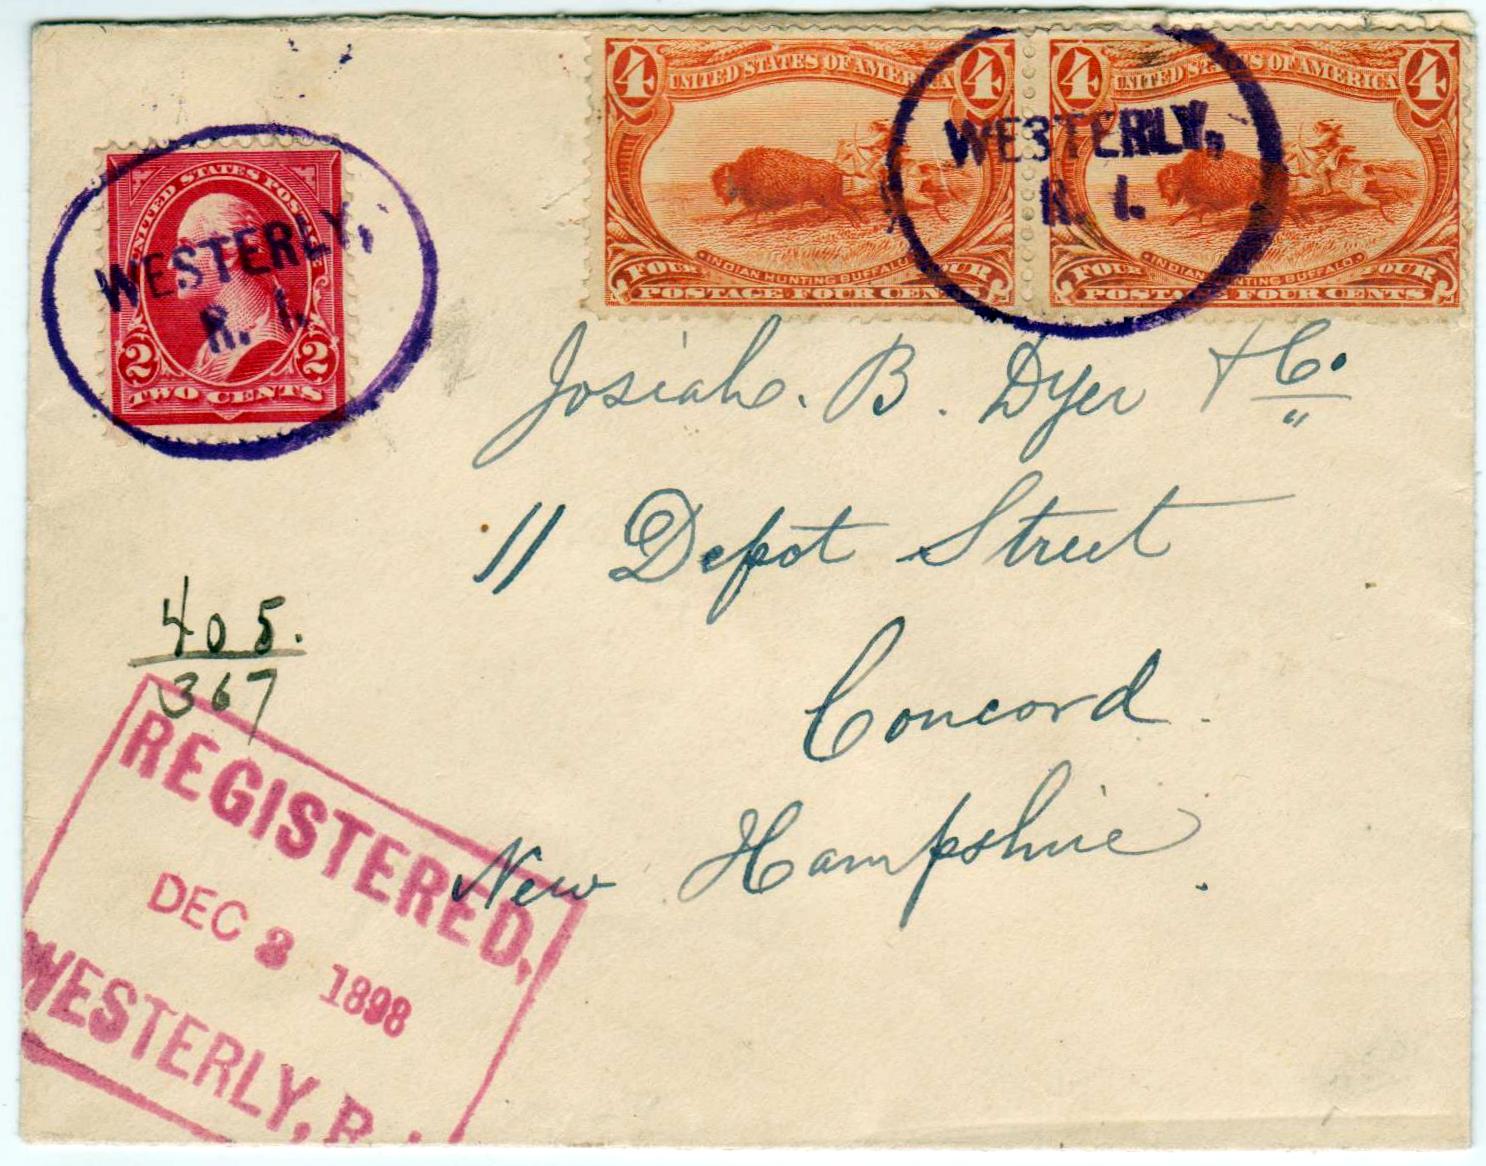 UNITED STATES POSTAGE
2 2
TWO CENTS
WESTERLY,
R. I.
4 UNITED STATES OF AMERICA 4
INDIAN HUNTING BUFFALO.
FOUR FOUR
POSTAGE FOUR CENTS
4 UNITED STATES OF AMERICA 4
INDIAN HUNTING BUFFALO.
FOUR FOUR
POSTAGE FOUR CENTS
WESTERLY,
R. I.
Josiah. B. Dyer & Co.
11 Depot Street
Concord.
New Hampshire.
405.
367
REGISTERED,
DEC 3 1898
WESTERLY, R. I.